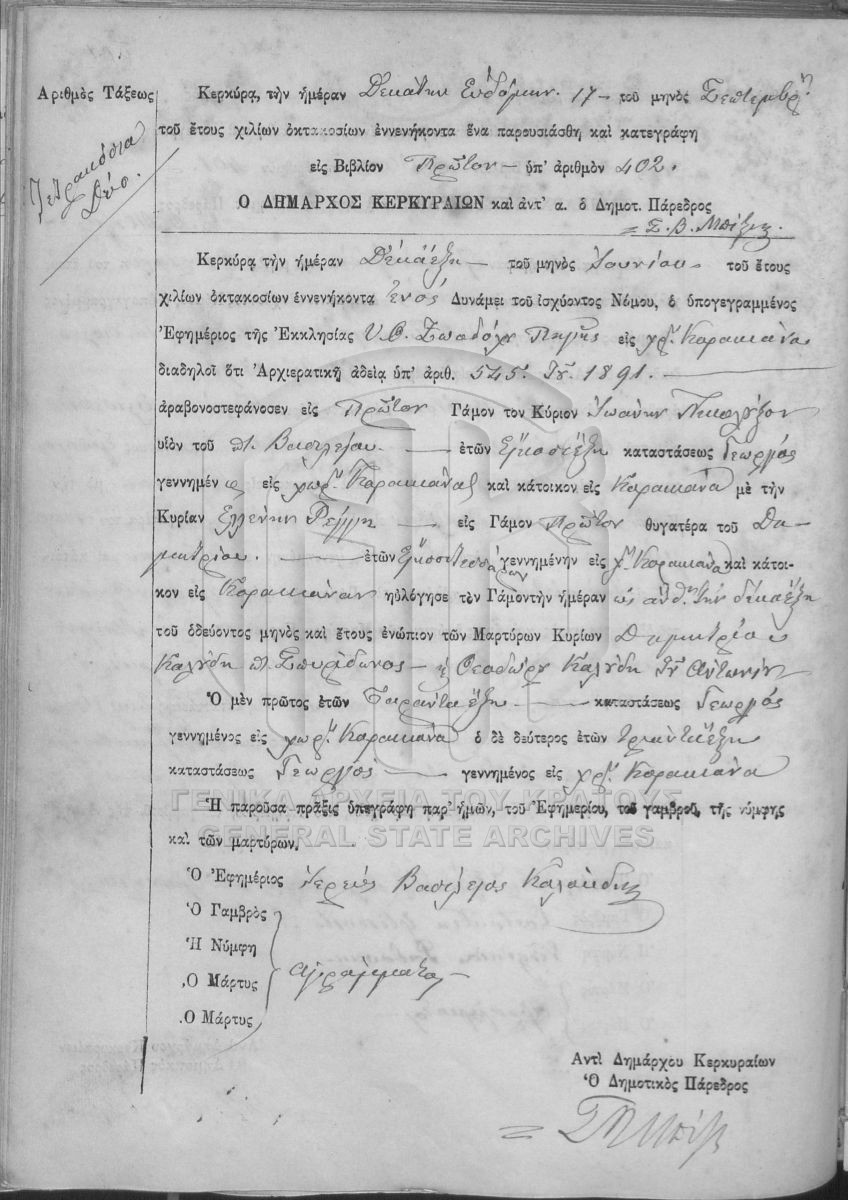 Ἀριθμὸς Τάξεως
Τετρακόσια
Δύο.
Κερκύρᾳ, τὴν ἡμέραν Δεκάτην Ευδόμην 17 — τοῦ μηνὸς Σεπτεμβρ
τοῦ ἔτους χιλίων ὀκτακοσίων ἐννενήκοντα ἕνα παρουσιάσθη καὶ κατεγράφη
εἰς Βιβλίον Πρῶτον — ὑπ' ἀριθμὸν 402.
Ο ΔΗΜΑΡΧΟΣ ΚΕΡΚΥΡΑΙΩΝ καὶ ἀντ' α. ὁ Δημοτ. Πάρεδρος
Σ. Β.
Κερκύρᾳ τὴν ἡμέραν Δέκαέξη — τοῦ μηνὸς Ιουνίου τοῦ ἔτους
χιλίων ὀκτακοσίων ἐννενήκοντα Ενός Δυνάμει τοῦ ἰσχύοντος Νόμου, ὁ ὑπογεγραμμένος
Ἐφημέριος τῆς Ἐκκλησίας Υ. Θ. Ζωοδόχου Πηγῆς εἰς χρ. Κορακιάνα
διαδηλοῖ ὅτι Ἀρχιερατικῇ ἀδείᾳ ὑπ' ἀριθ. 545. 1891. —
ἀραβονοστεφάνοσεν εἰς Πρῶτον Γάμον τον Κύριον Ιωάνην
υἱὸν τοῦ π. Βασιλείου — ἐτῶν Εἴκοσιέξη καταστάσεως Γεωργός
γεννημέν ο εἰς χωρ. Κορακιάνα καὶ κάτοικον εἰς Κορακιάνα μὲ τὴν
Κυρίαν Ελλένην — εἰς Γάμον Πρῶτον θυγατέρα τοῦ Δη-
μητρίου. — ἐτῶν Είκοσιτεσσάρων γεννημένην εἰς χρ. Κορακιάνα καὶ κάτοι-
κον εἰς Κορακιάναν ηὐλόγησε τὸν Γάμον τὴν ἡμέραν ὡς ἄνωθ. τὴν δέκαέξη
τοῦ ὁδεύοντος μηνὸς καὶ ἔτους ἐνώπιον τῶν Μαρτύρων Κυρίων Δημητρίου
Καλούδη π. Σπυρίδωνος — Θεοδώρου Καλούδη Αντωνίου
Ὁ μὲν πρῶτος ἐτῶν Σαρανταέξη — καταστάσεως Γεωργός
γεννημένος εἰς χωρ. Κορακιάνα ὁ δὲ δεύτερος ἐτῶν τριανταέξη
καταστάσεως Γεωργός — γεννημένος εἰς χρ. Κορακιάνα
ΓΕΝΙΚΑ ΑΡΧΕΙΑ ΤΟΥ ΚΡΑΤΟΥΣ
Ἡ παροῦσα πρᾶξις ὑπεγράφη παρ' ἡμῶν, τοῦ Ἐφημερίου, τοῦ γαμβροῦ, τῆς νύμφης
GENERAL STATE ARCHIVES
καὶ τῶν μαρτύρων.
Ὁ Ἐφημέριος Ιερεύς Βασίλειος Καλούδης
Ὁ Γαμβρὸς
Ἡ Νύμφη
Ὁ Μάρτυς αγράμματοι —
Ὁ Μάρτυς
Αντὶ Δημάρχου Κερκυραίων
Ὁ Δημοτικὸς Πάρεδρος